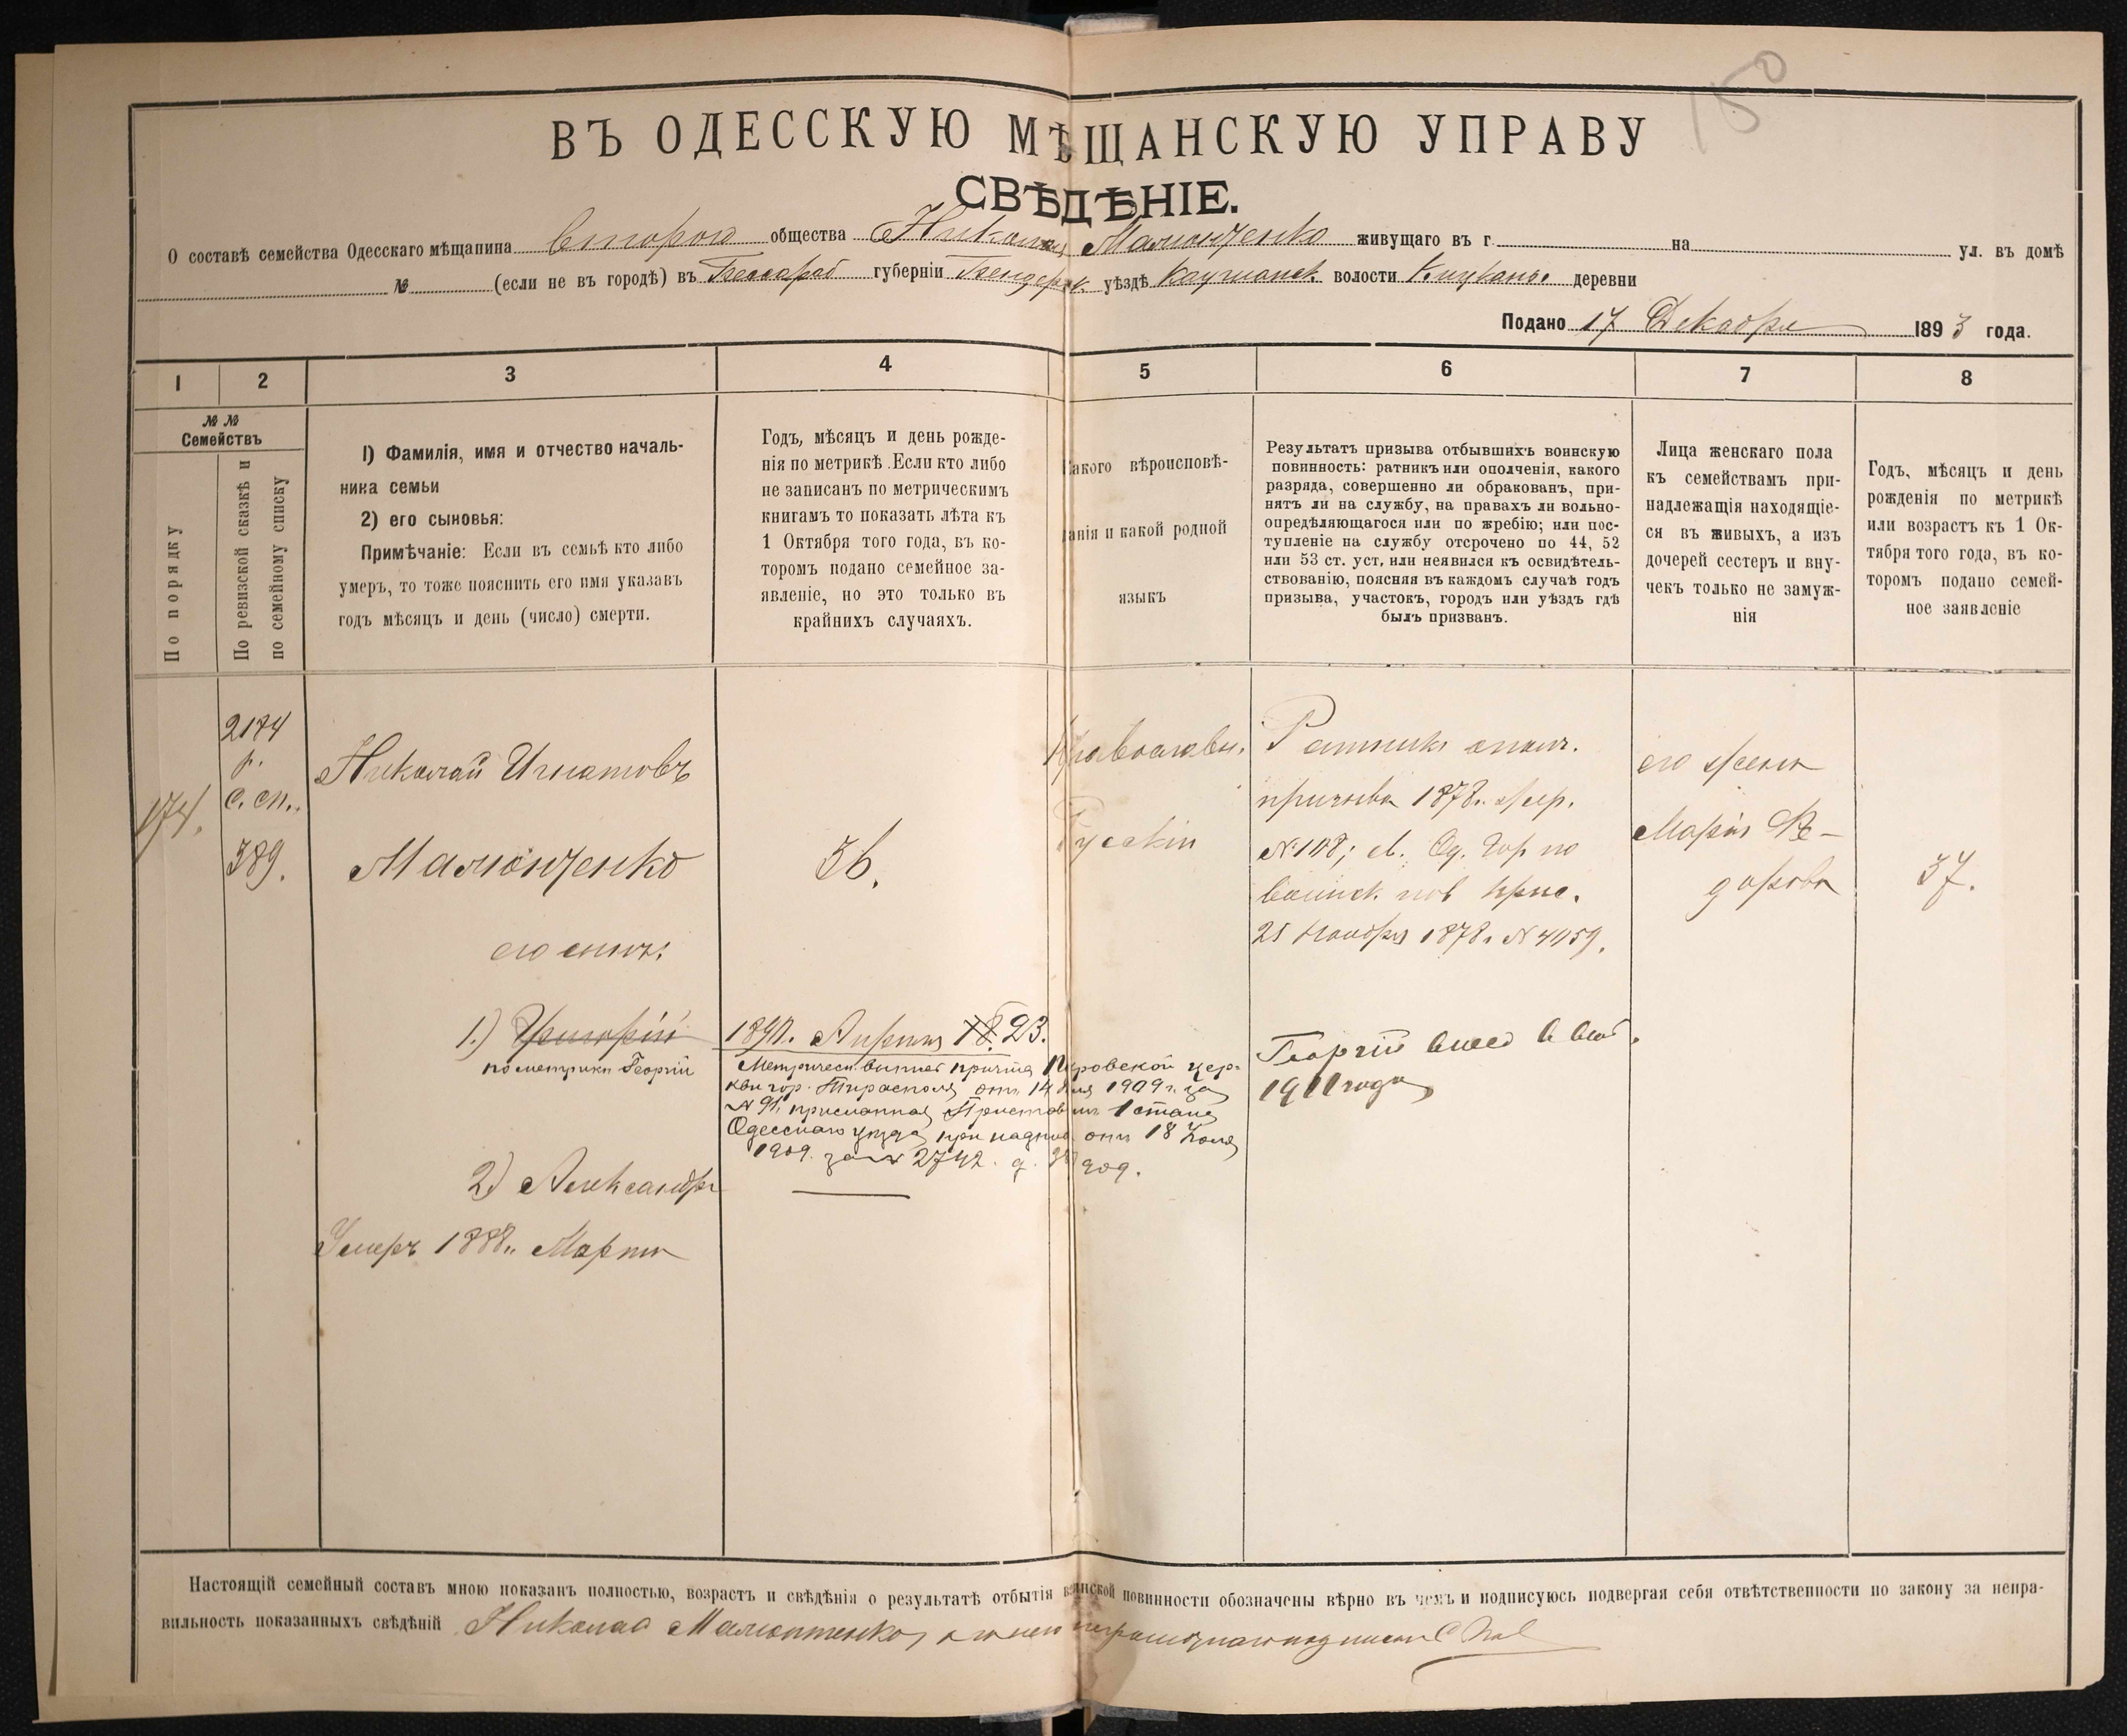 150
ВЪ ОДЕССКУЮ МѢЩАНСКУЮ УПРАВУ
СВѢДѢНІЕ.
О составѣ семейства Одесскаго мѣщанина второго общества Николая живущаго въ г. на ул. въ домѣ
№ (если не въ городѣ) въ Бессараб губерніи Бендерск. уѣздѣ Каушанск. волости Кицканы деревни
Подано 17 Декабря 1893 года.
1 2 3 4 5 6 7 8
№ №
Семействъ
По порядку
По ревизской сказкѣ и
по семейному списку
1) Фамилія, имя и отчество началь-
ника семьи
2) его сыновья:
Примѣчаніе: Если въ семьѣ кто либо
умеръ, то тоже пояснить его имя указавъ
годъ мѣсяцъ и день (число) смерти.
Годъ, мѣсяцъ и день рожде-
нія по метрикѣ. Если кто либо
не записанъ по метрическимъ
книгамъ то показать лѣта къ
1 Октября того года, въ ко-
торомъ подано семейное за-
явленіе, но это только въ
крайнихъ случаяхъ.
Какого вѣроисповѣ-
данія и какой родной
языкъ
Результатъ призыва отбывшихъ воинскую
повинность: ратникъ или ополченія, какого
разряда, совершенно ли обракованъ, при-
нятъ ли на службу, на правахъ ли вольно-
опредѣляющагося или по жребію; или пос-
тупленіе на службу отсрочено по 44, 52
или 53 ст. уст, или неявился къ освидѣтель-
ствованію, поясняя въ каждомъ случаѣ годъ
призыва, участокъ, городъ или уѣздъ гдѣ
былъ призванъ.
Лица женскаго пола
къ семействамъ при-
надлежащія находящіе-
ся въ живыхъ, а изъ
дочерей сестеръ и вну-
чекъ только не замуж-
нія
Годъ, мѣсяцъ и день
рожденія по метрикѣ
или возрастъ къ 1 Ок-
тября того года, въ ко-
торомъ подано семей-
ное заявленіе
174.
2174
р.
с. сп.
389.
Николай Игнатовъ
36.
Православн.
Русскій
Ратникъ ополч.
призыва 1878 г. жер.
№ 108; св. Од. Гор по
воинск. пов прис.
25 Ноября 1878 г. № 4059.
его жена
Марія Ѳе-
дорова
37.
его сынъ:
1.) Григорій
по метрики Георгій
1890 г. Апрѣля 18. 23.
Метрическ. выпись причта Покровской цер-
кви гор. Тирасполя отъ 14 Іюля 1909 г. за
№ 91, присланная Приставомъ 1 стана
Одесскаго уѣзда при надписи отъ 18 Іюля
1909. за № 2742.
Георгій внес в
1911 года
2) Александръ
Умеръ 1888 г. Марта
Настоящій семейный составъ мною показанъ полностью, возрастъ и свѣдѣнія о результатѣ отбытія воинской повинности обозначены вѣрно въ чемъ и подписуюсь подвергая себя отвѣтственности по закону за непра-
вильность показанныхъ свѣдѣній Николай